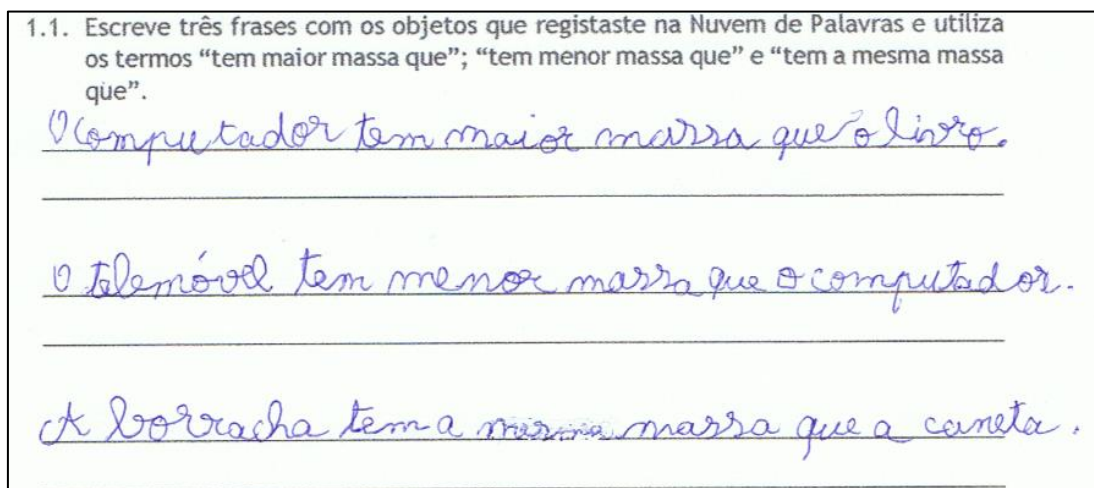 1.1. Escreve três frases com os objetos que registaste na Nuvem de Palavras e utiliza
os termos “tem maior massa que”; “tem menor massa que” e “tem a mesma massa
que”.
O computador tem maior massa que o livro.
O telemóvel tem menor massa que o computador.
A borracha tem a mesma massa que a caneta.